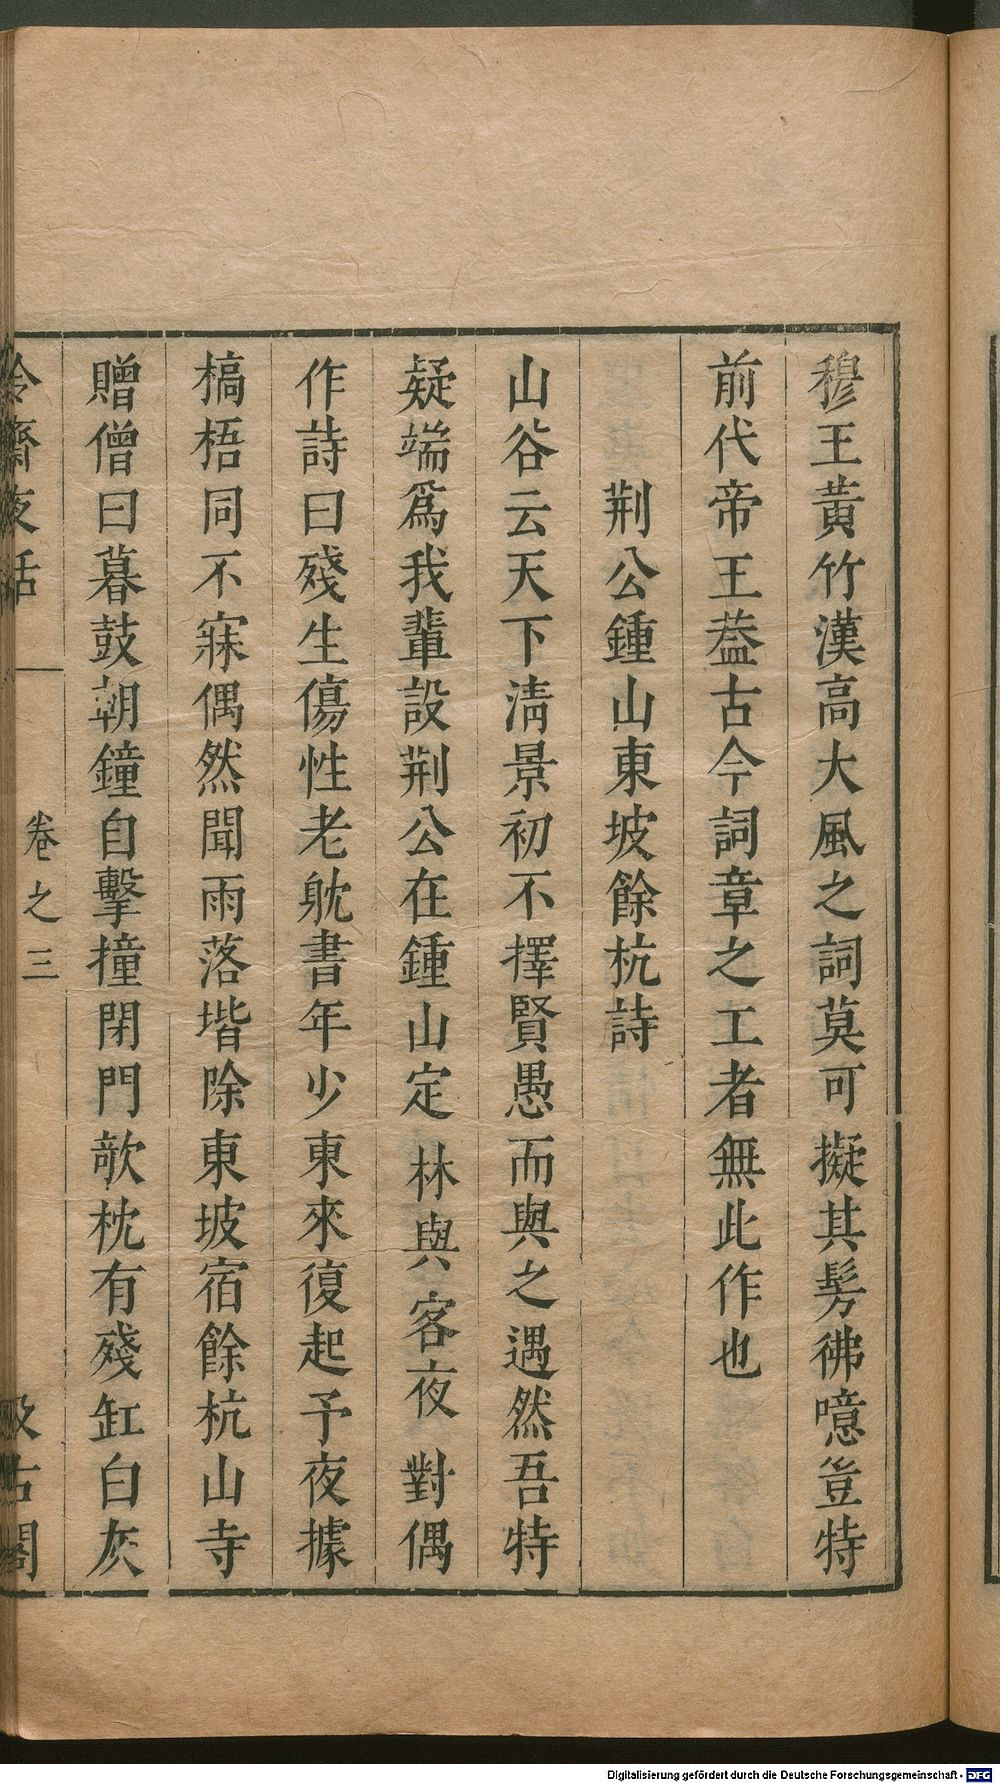 穆王黃竹漢高大風之詞莫可擬其髣彿噫豈特
前代帝王葢古今詞章之工者無此作也
荆公鍾山東坡餘杭詩
山谷云天下清景初不擇賢愚而與之遇然吾特
疑端爲我輩設荆公在鍾山定林與客夜對偶
作詩曰殘生傷性老躭書年少東來復起予夜據
槁梧同不寐偶然聞雨落堦除東坡宿餘杭山寺
贈僧曰暮鼓朝鐘自擊撞閉門欹枕有殘缸白灰
冷齋夜話 卷之三 汲古閣
Digitalisierung gefördert durch die Deutsche Forschungsgemeinschaft - DFG